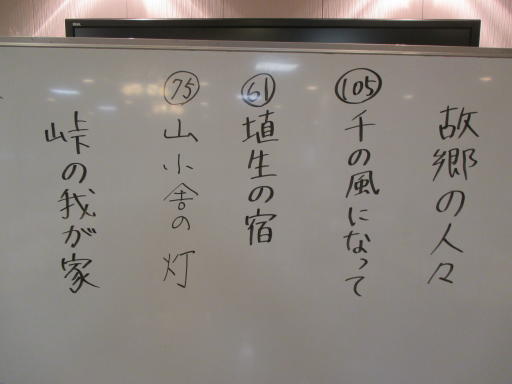 故郷の人々
105
千の風になって
61
埴生の宿
75
山小舎の灯
峠の我が家